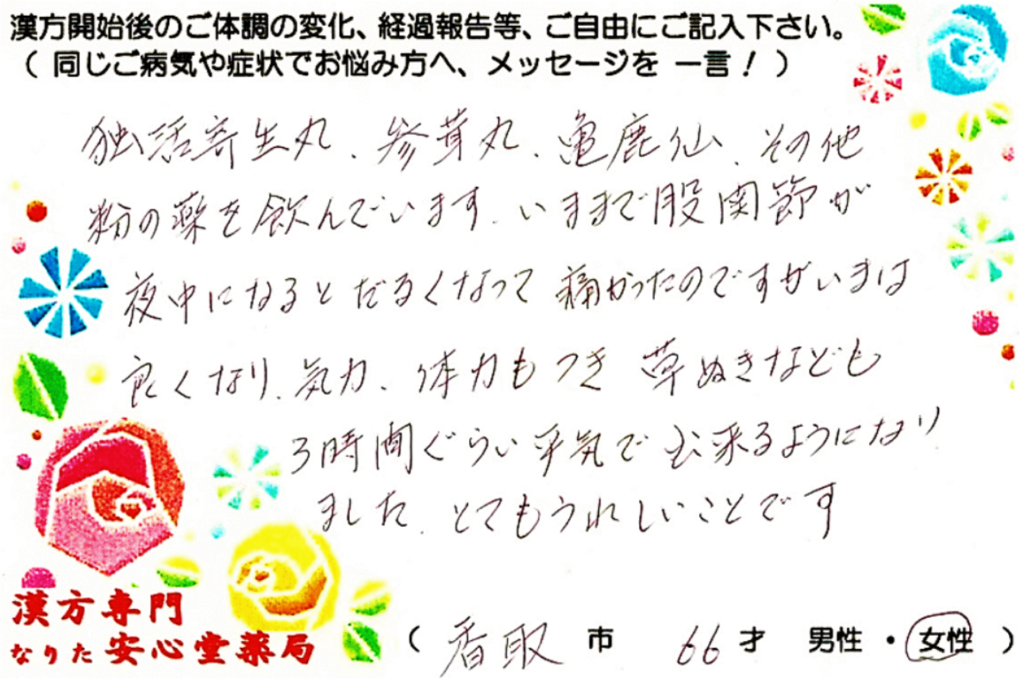 漢方開始後のご体調の変化、経過報告等、ご自由にご記入下さい。
（ 同じご病気や症状でお悩み方へ、メッセージを 一言！ ）
独活寄生丸、参茸丸、亀鹿仙、その他
粉の薬を飲んでいます。いままで股関節が
夜中になるとだるくなって痛かったのですがいまは
良くなり、気力、体力もつき 草ぬきなども
3時間ぐらい平気で出来るようになり
ました。とてもうれしいことです
漢方専門
なりた 安心堂薬局
（ 香取 市 66 才 男性 ・ 女性 ）